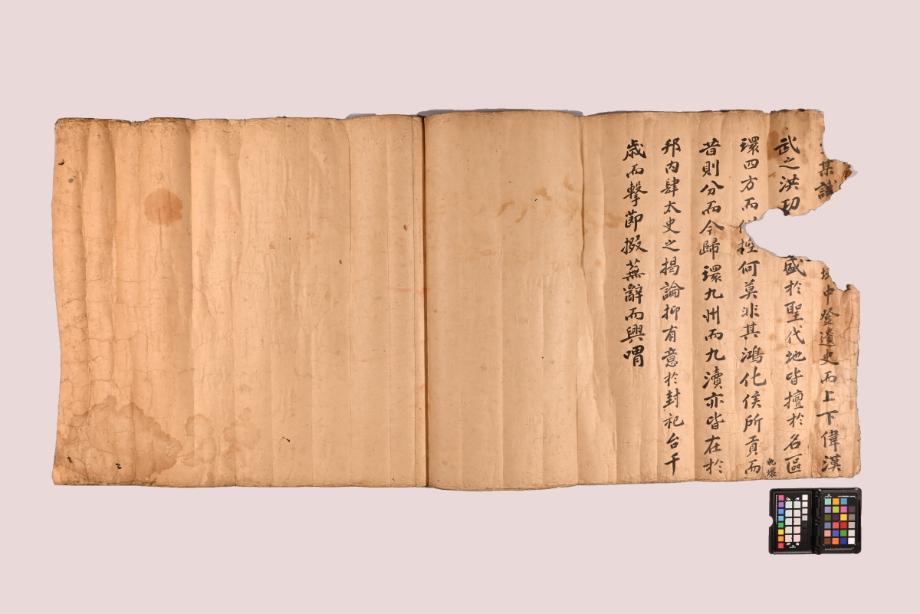 中登遺史而上下偉漢
武之洪功盛於聖代地皆擅於名區
環四方而控何莫非其鴻化侯所貢而
九壤
昔則分而今歸環九州而九瀆亦皆在於
邦內肆太史之揭論抑有意於封祀台千
歲而擊節掇蕪辭而興喟